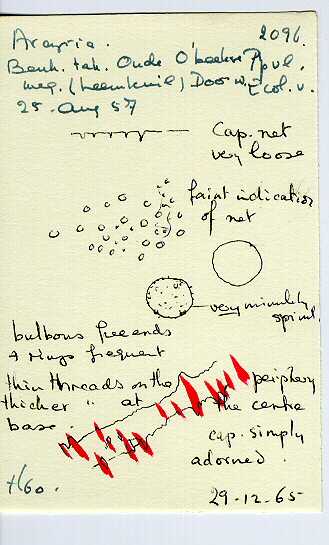 Arcyria. 2096.
Beuk. tak. Oude
weg. (Leemkuil) Doorw.
25. Aug 57
Cap. net
very loose
faint indication
of net
very minutely
spinul.
bulbous free ends
& rings frequent
thin threads on the periphery
thicker " at the centre
base. cap. simply
adorned.
H60.
29-12-65